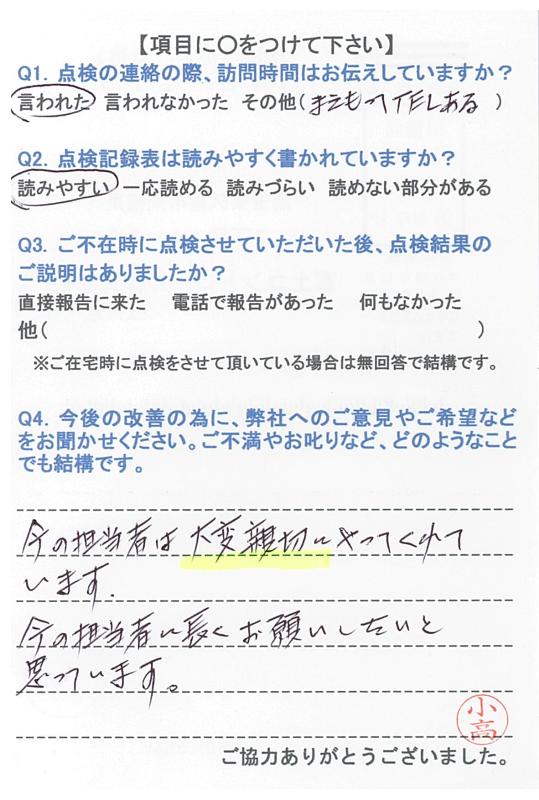 【項目に〇をつけて下さい】
Q1. 点検の連絡の際、訪問時間はお伝えしていますか？
言われた 言われなかった その他( まえもって )
Q2. 点検記録表は読みやすく書かれていますか？
読みやすい 一応読める 読みづらい 読めない部分がある
Q3. ご不在時に点検させていただいた後、点検結果の
ご説明はありましたか？
直接報告に来た 電話で報告があった 何もなかった
他( )
※ご在宅時に点検をさせて頂いている場合は無回答で結構です。
Q4. 今後の改善の為に、弊社へのご意見やご希望など
をお聞かせください。ご不満やお叱りなど、どのようなこと
でも結構です。
今の担当者は大変親切にやってくれて
います.
今の担当者に長くお願いしたいと
思っています。
小高
ご協力ありがとうございました。